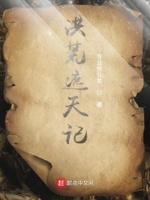 洪荒遮天记
起点中文网